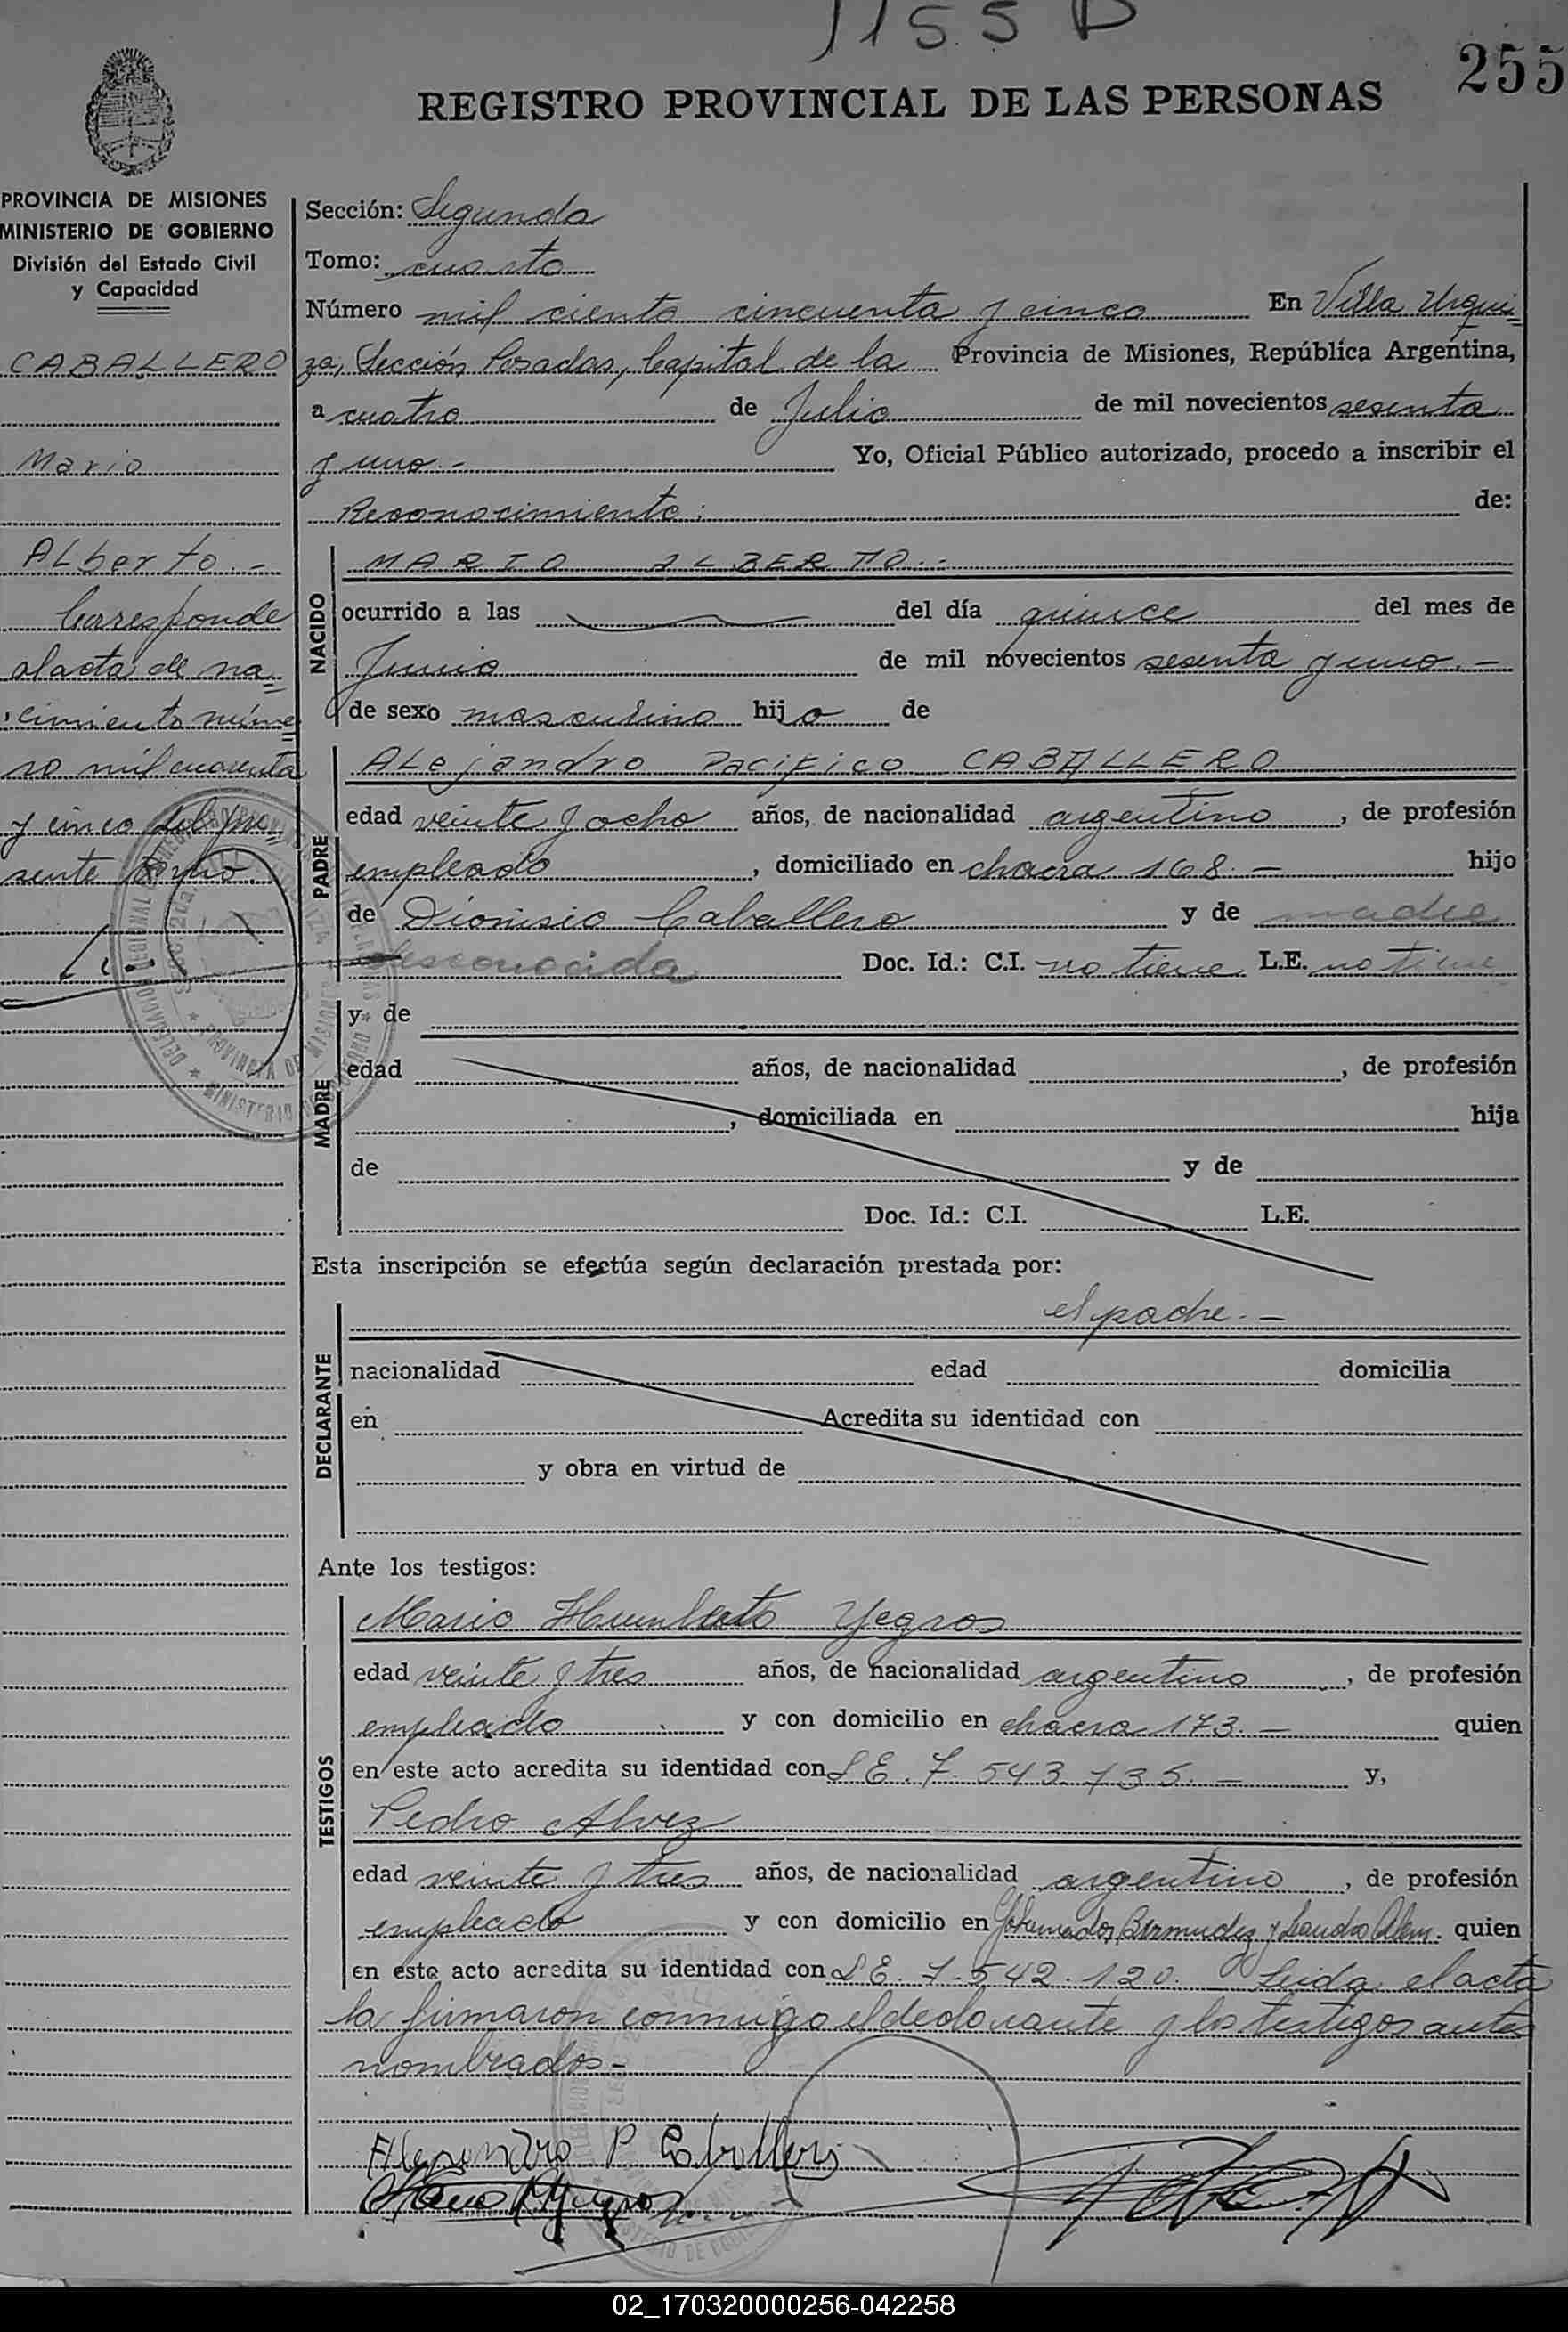 1155 D
255
REGISTRO PROVINCIAL DE LAS PERSONAS
PROVINCIA DE MISIONES
MINISTERIO DE GOBIERNO
División del Estado Civil
y Capacidad
CABALLERO
Mario
ALberto.-
Corresponde
al acta de na=
cimiento núme=
ro mil cuarenta
y cinco del pre=
sente
Sección: Segunda
Tomo: cuarto
Número mil ciento cincuenta y cinco En Villa Urqui=
za, Sección Posadas, Capital de la Provincia de Misiones, República Argentina,
a cuatro de Julio de mil novecientos sesenta
y uno.- Yo, Oficial Público autorizado, procedo a inscribir el
Reconocimiento: de:
NACIDO
MARIO ALBERTO.-
ocurrido a las del día quince del mes de
Junio de mil novecientos sesenta y uno.-
de sexo masculino hijo de
PADRE
ALejandro Pacifico CABALLERO
edad veinte y ocho años, de nacionalidad argentino, de profesión
empleado, domiciliado en chacra 168.- hijo
de Dionisio Caballero y de madre
desconocida Doc. Id.: C.I. no tiene L.E. no tiene
MADRE
y de
edad años, de nacionalidad , de profesión
, domiciliada en hija
de y de
Doc. Id.: C.I. L.E.
Esta inscripción se efectúa según declaración prestada por:
DECLARANTE
el padre.-
nacionalidad edad domicilia
en Acredita su identidad con
y obra en virtud de
Ante los testigos:
TESTIGOS
Mario Humberto Yegros
edad veinte y tres años, de nacionalidad argentino, de profesión
empleado y con domicilio en chacra 173.- quien
en este acto acredita su identidad con L E. 7.543.735.- y,
Pedro Alvez
edad veinte y tres años, de nacionalidad argentino, de profesión
empleado y con domicilio en Gobernador Bermudez y Leandro Alem. quien
en este acto acredita su identidad con L E. 7.542.120. Leida el acta
la firmaron conmigo el declarante y los testigos antes
nombrados.-
Alejandro P Caballero
02_170320000256-042258